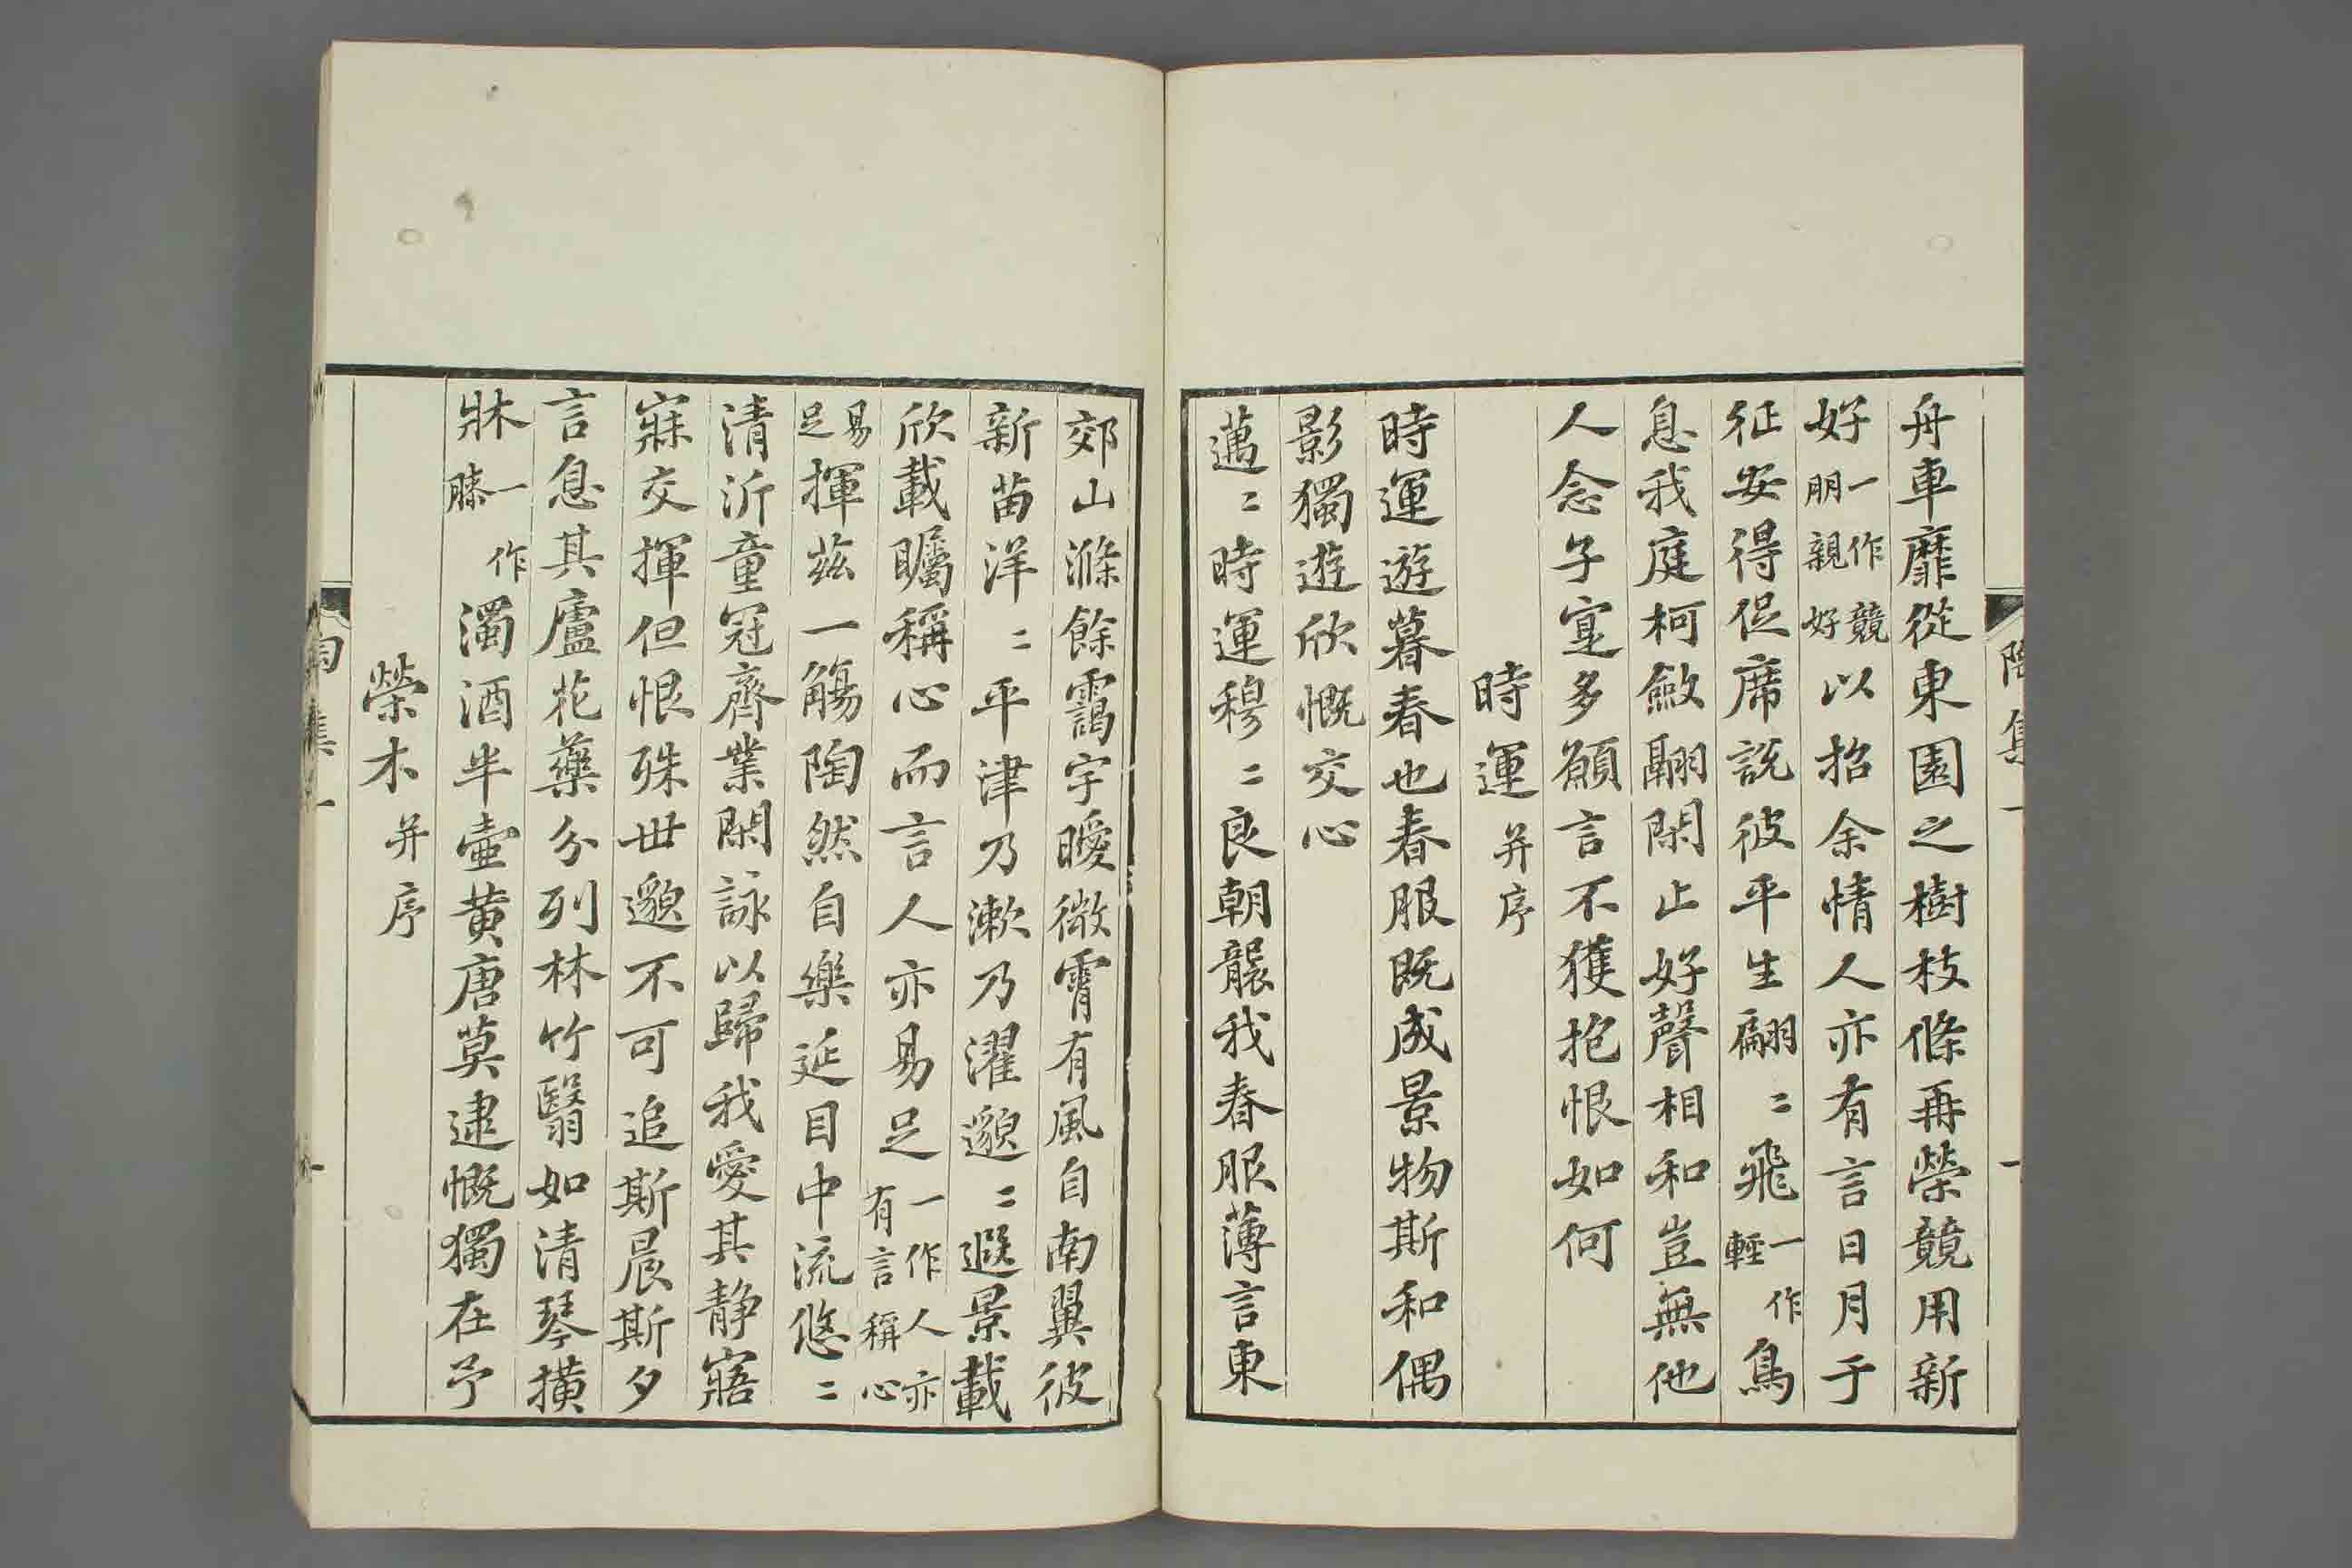 舟車靡從東園之樹枝條再榮競用新
好一作競朋親好以招余情人亦有言日月于
征安得促席説彼平生翩〻飛一作輕鳥
息我庭柯斂翮閑止好聲相和豈無他
人念子寔多願言不獲抱恨如何
時運并序
時運遊暮春也春服既成景物斯和偶
影獨遊欣慨交心
邁〻時運穆〻良朝襲我春服薄言東
郊山滌餘靄宇曖微霄有風自南翼彼
新苗洋〻平津乃漱乃濯邈〻遐景載
欣載矚稱心而言人亦易足一作人亦有言稱心
易足揮茲一觴陶然自樂延目中流悠〻
清沂童冠齊業閑詠以歸我愛其静寤
寐交揮但恨殊世邈不可追斯晨斯夕
言息其廬花藥分列林竹翳如清琴横
牀一作膝濁酒半壺黄唐莫逮慨獨在予
榮木并序